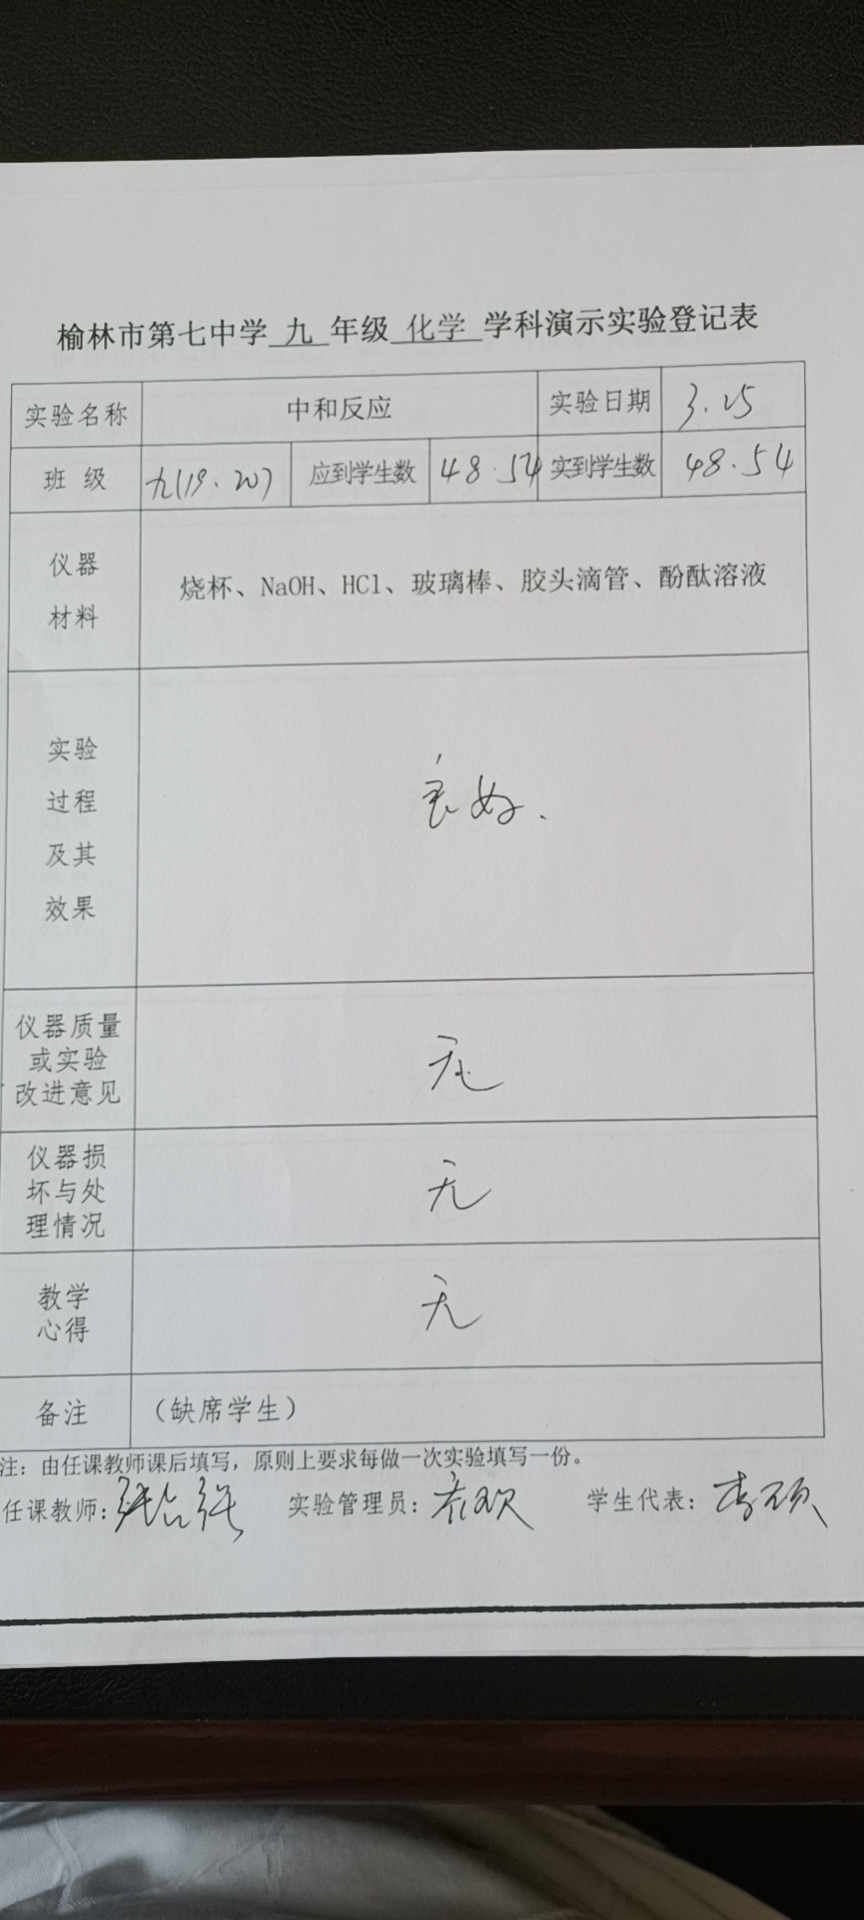 榆林市第七中学 九 年级 化学 学科演示实验登记表
实验名称 中和反应 实验日期 3.25
班 级 九(19.20) 应到学生数 48.54 实到学生数 48.54
仪器
材料
烧杯、NaOH、HCl、玻璃棒、胶头滴管、酚酞溶液
实验
过程
及其
效果
良好.
仪器质量
或实验
改进意见
无
仪器损
坏与处
理情况
无
教学
心得
无
备注 （缺席学生）
注：由任课教师课后填写，原则上要求每做一次实验填写一份。
任课教师: 实验管理员: 学生代表: 李硕